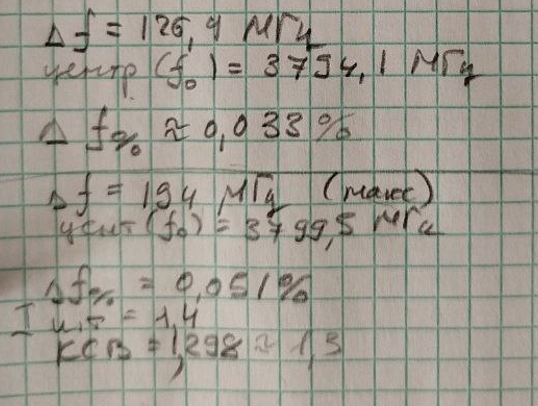 Δf = 126,4 МГц
центр (f₀) = 3794,1 МГц
Δ f% ≈ 0,033%
Δf = 194 МГц (макс)
цент (f₀) = 3799,5 МГц
Δf% = 0,051%
= 1,4
КСВ = 1,298 ≈ 1,3